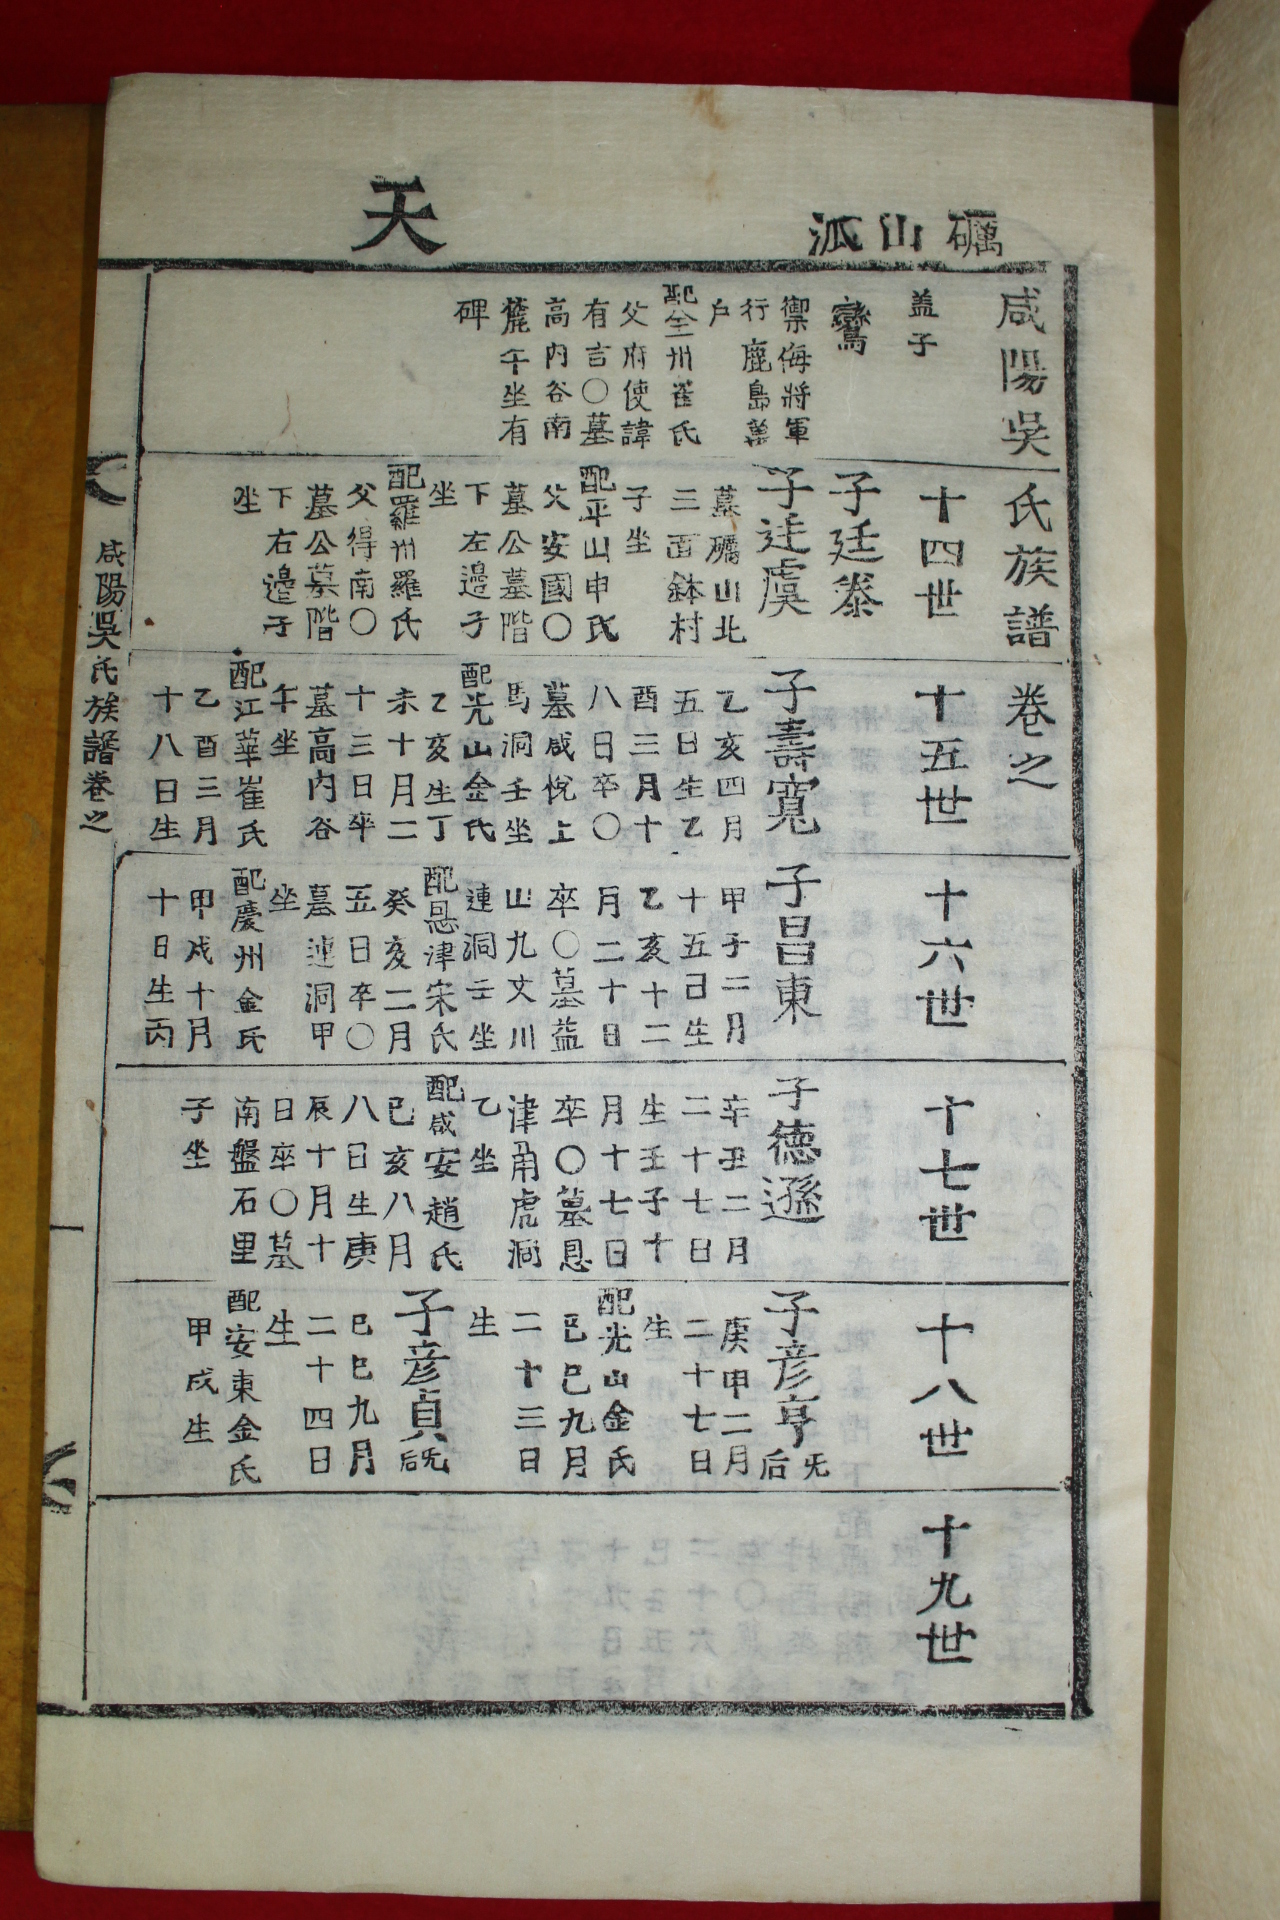 礪山派
天
咸陽吳氏族譜卷之
盖子
十四世
十五世
十六世
十七世
十八世
十九世
鸞
禦侮將軍
行鹿島萬
戶
配全州崔氏
父府使諱
有吉〇墓
高內谷南
麓午坐有
碑
子廷泰
子廷虞
墓礪山北
三面鉢村
子坐
配平山申氏
父安國〇
墓公墓階
下左邊子
坐
配羅州羅氏
父得南〇
墓公墓階
下右邊子
坐
子壽寬
乙亥四月
五日生乙
酉三月十
八日卒〇
墓咸悅上
馬洞壬坐
配光山金氏
乙亥生丁
未十月二
十三日卒
墓高內谷
午坐
配江華崔氏
乙酉三月
十八日生
子昌東
甲子二月
十五日生
乙亥十二
月二十日
卒〇墓益
山九文川
連洞壬坐
配恩津宋氏
癸亥二月
五日卒〇
墓連洞甲
坐
配慶州金氏
甲戌十月
十日生丙
子德遜
辛丑二月
二十七日
生壬子十
月十七日
卒〇墓恩
津角虎洞
乙坐
配咸安趙氏
己亥八月
八日生庚
辰十月十
日卒〇墓
南盤石里
子坐
子彦亨无后
庚甲二月
二十七日
生
配光山金氏
己巳九月
二十三日
生
子彦貞无后
己巳九月
二十四日
生
配安東金氏
甲戌生
咸陽吳氏族譜卷之